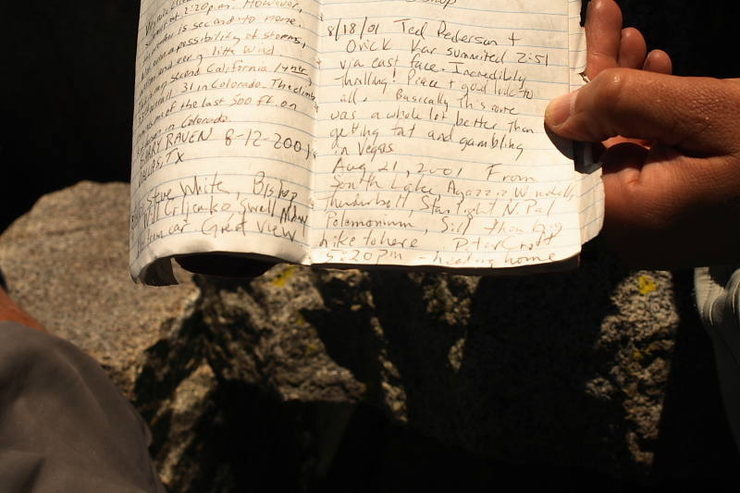 at 2:20 p.m. However,
is second to none.
possibility of storms,
and very little wind
second California 14er,
31 in Colorado. The climb
of the last 500 ft. on
in Colorado.
RAVEN 8-12-2001
TX
Steve White, Bishop
Will Crljenko, Swell
Great View
8/18/01 Ted Pederson +
Orick Kar summited 2:51
via east face. Incredibly
thrilling! Peace + good luck to
all. Basically this sure
was a whole lot better than
getting fat and gambling
in Vegas
Aug 21, 2001 From
South Lake, Agazziz Winchell,
Thunderbolt, Starlight N. Pal
Polemonium, Sill then
hike to here Peter Croft
5:20 PM - heading home